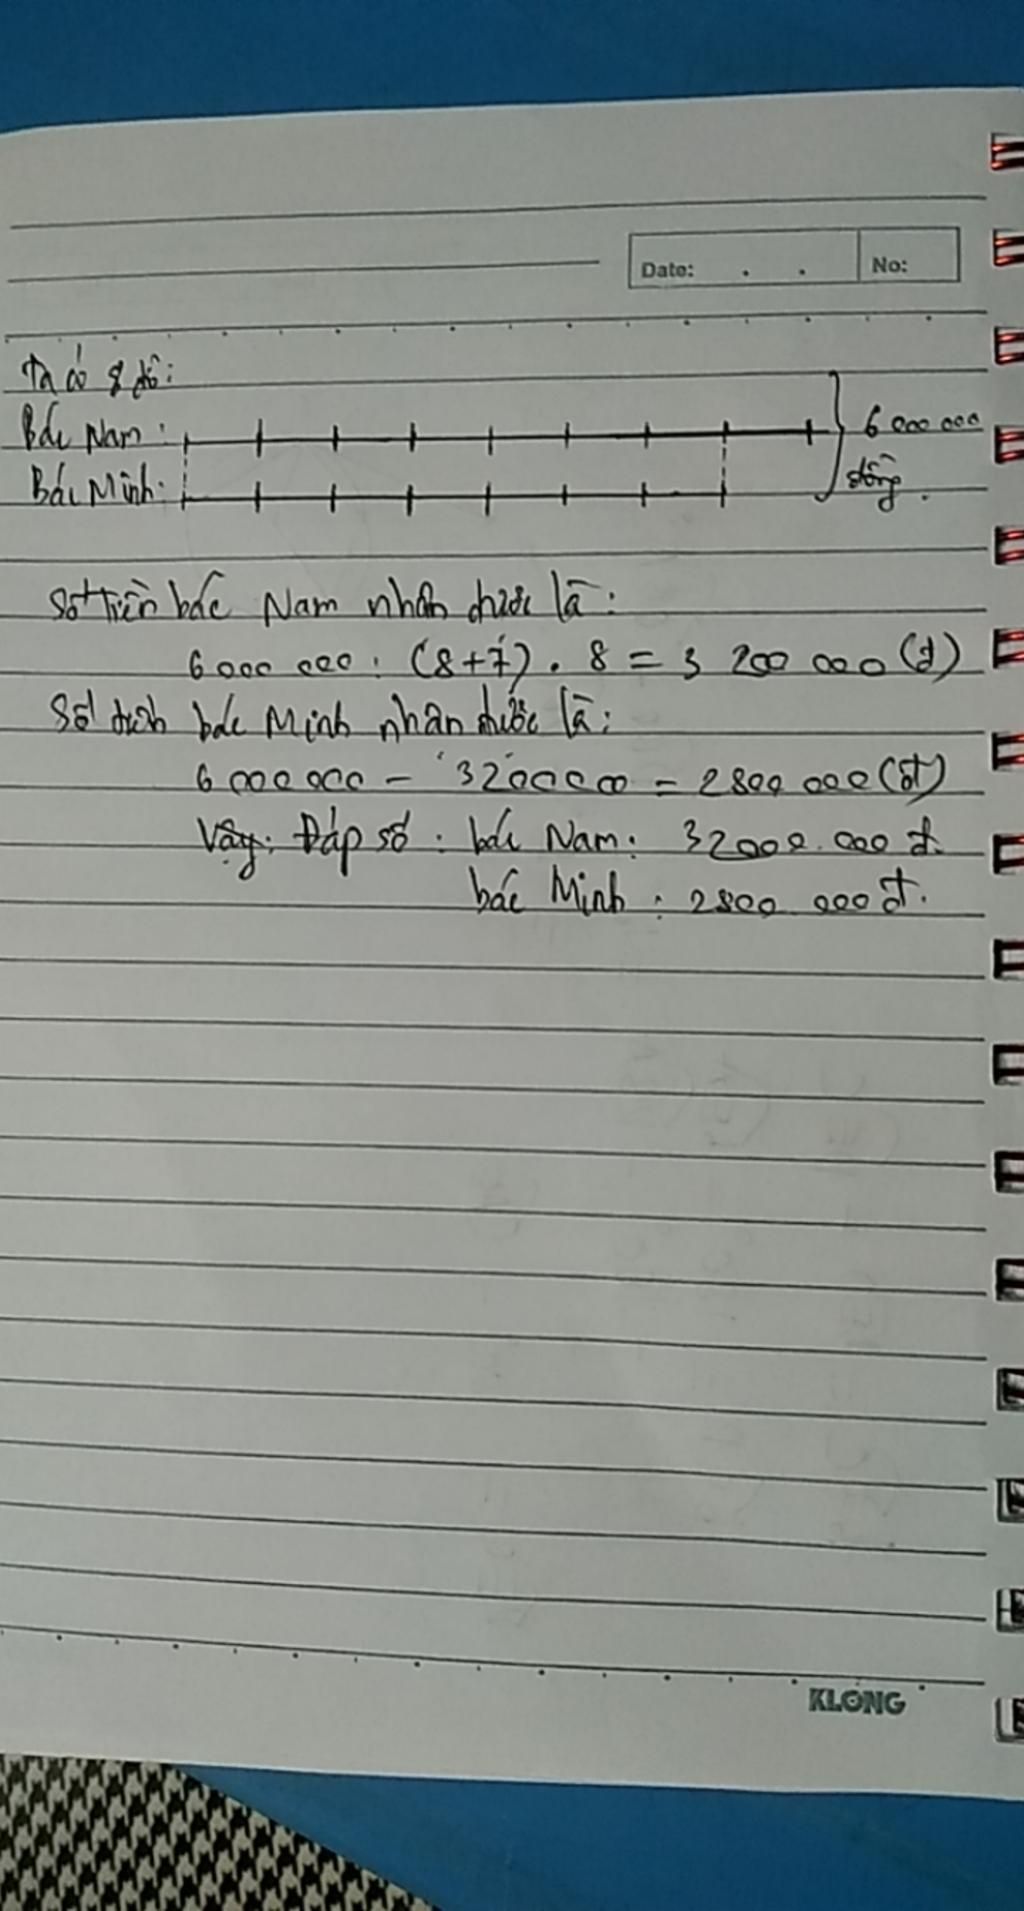 Date: . . No:
Ta có sơ đồ:
Bác Nam: 6 000 000
Bác Minh: đồng.
Số tiền bác Nam nhận được là:
6 000 000 : (8+7) . 8 = 3 200 000 (đ)
Số bác Minh nhận được là:
6 000 000 - 3200000 = 2800 000 (đ)
Vậy: Đáp số : bác Nam: 32000.000 đ.
bác Minh : 2800 000 đ.
KLONG